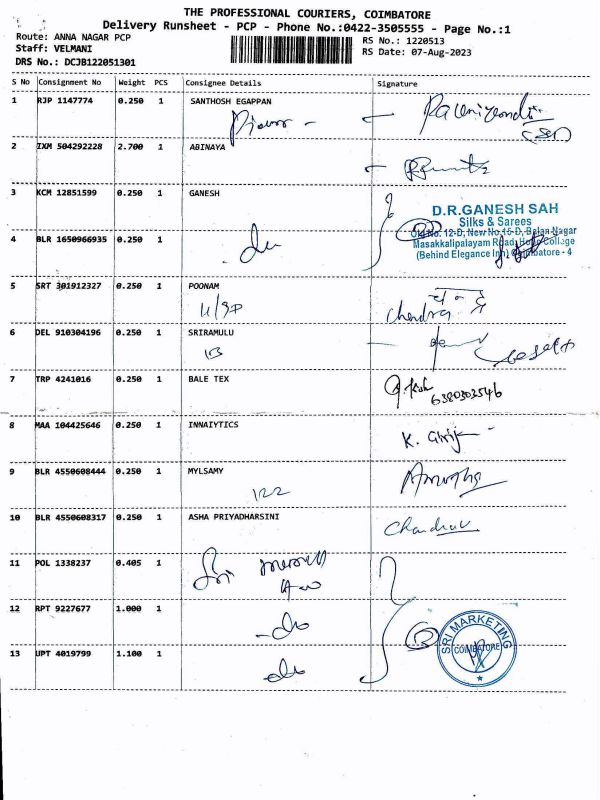 THE PROFESSIONAL COURIERS, COIMBATORE
Delivery Runsheet - PCP - Phone No.:0422-3505555 - Page No.:1
Route: ANNA NAGAR PCP
RS No.: 1220513
Staff: VELMANI
RS Date: 07-Aug-2023
DRS No.: DCJB122051301
S No Consignment No Weight PCS Consignee Details Signature
1 RJP 1147774 0.250 1 SANTHOSH EGAPPAN
2 IXM 504292228 2.700 1 ABINAYA
3 KCM 12851599 0.250 1 GANESH
D.R.GANESH SAH
Silks & Sarees
Old No. 12-D, New No.15-D, Balan Nagar
4 BLR 1650966935 0.250 1
Masakkalipalayam Road, Hope College
(Behind Elegance Inn) Coimbatore - 4
do
5 SRT 301912327 0.250 1 POONAM
Chandra
6 DEL 910304196 0.250 1 SRIRAMULU
7 TRP 4241016 0.250 1 BALE TEX
6380303546
8 MAA 104425646 0.250 1 INNAIYTICS
K. Girija
9 BLR 4550608444 0.250 1 MYLSAMY
122
10 BLR 4550608317 0.250 1 ASHA PRIYADHARSINI
11 POL 1338237 0.405 1
Sri
12 RPT 9227677 1.000 1
do
SRI MARKETING
COIMBATORE
13 UPT 4019799 1.100 1
do